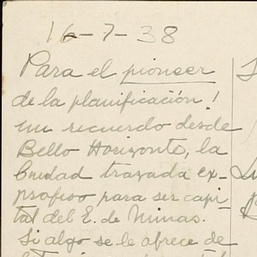 16-7-38
Para el pioneer
de la planificación!
un recuerdo desde
Bello Horizonte, la
Ciudad trazada ex-
profeso para ser capi-
tal del E. de Minas.
Si algo se le ofrece de